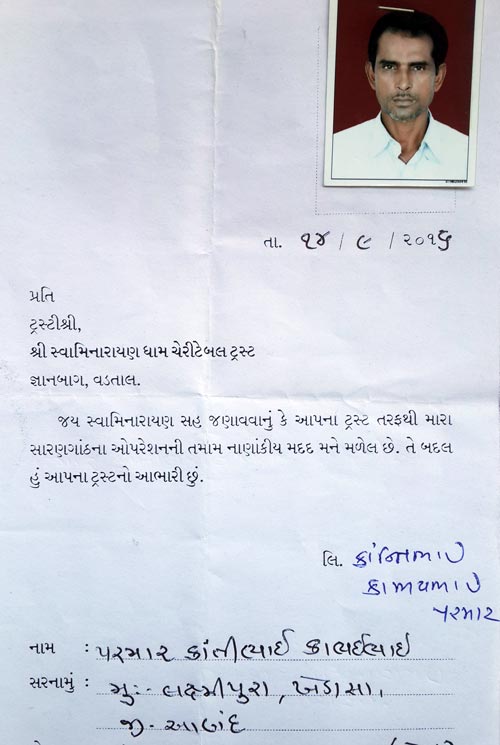 તા. ૧૪ / ૯ / ૨૦૧૬
પ્રતિ
ટ્રસ્ટીશ્રી,
શ્રી સ્વામિનારાયણ ધામ ચેરીટેબલ ટ્રસ્ટ
જ્ઞાનબાગ, વડતાલ.
જય સ્વામિનારાયણ સહ જણાવવાનું કે આપના ટ્રસ્ટ તરફથી મારા
સારણગાંઠના ઓપરેશનની તમામ નાણાંકીય મદદ મને મળેલ છે. તે બદલ
હું આપના ટ્રસ્ટનો આભારી છું.
લિ. કાંન્તિભાઇ
પરમાર
નામ : પરમાર કાંતીભાઈ
સરનામું : મુઃ- લક્ષ્મીપુરા, ખડાસા,
જી- આણંદ